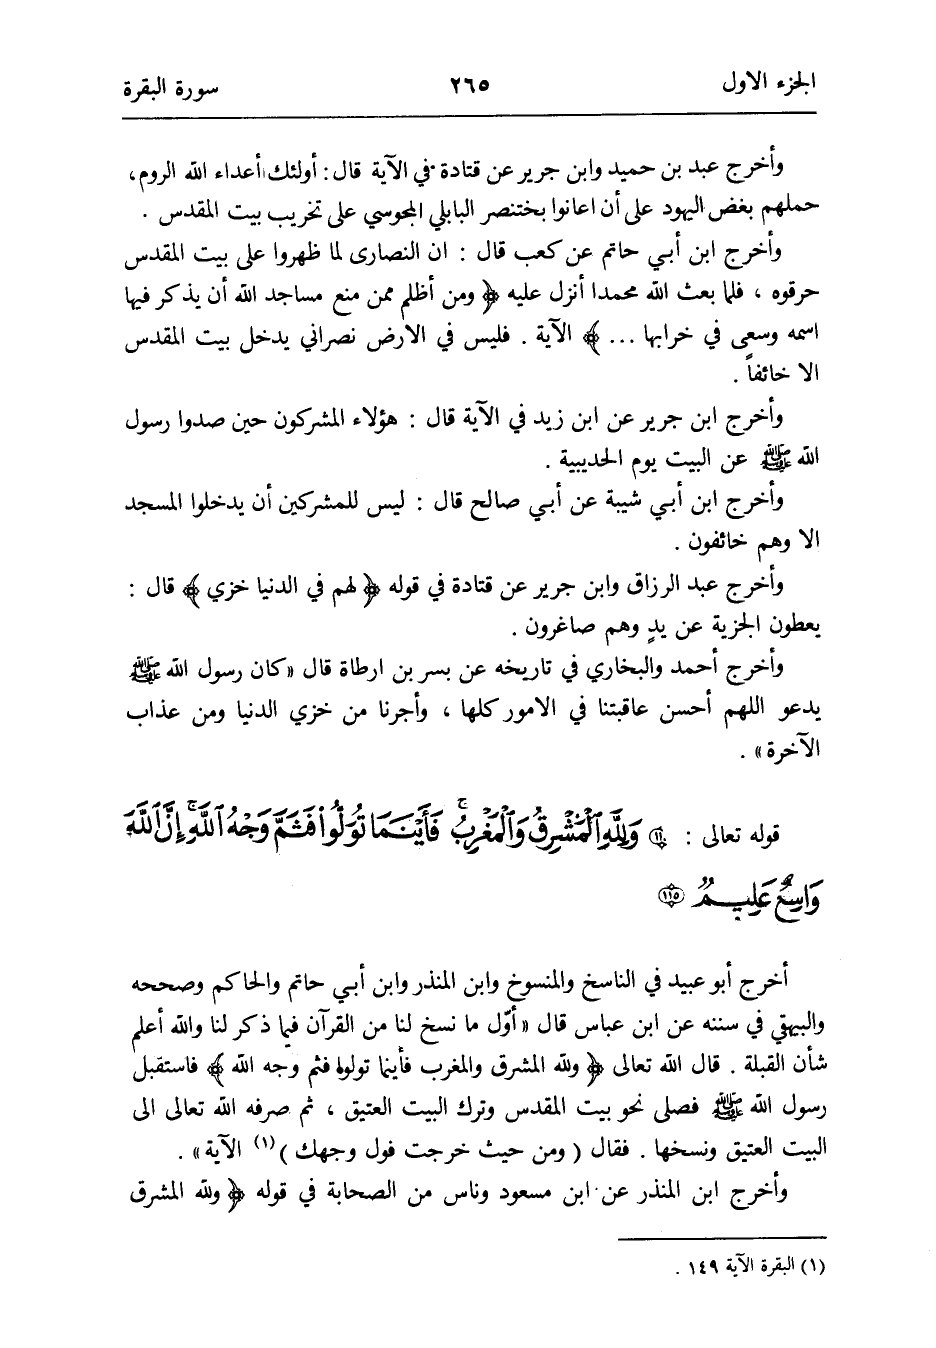 الجزء الاول ٢٦٥ سورة البقرة
وأخرج عبد بن حميد وابن جرير عن قتادة في الآية قال : أولئك أعداء الله الروم،
حملهم بغض اليهود على أن اعانوا بختنصر البابلي المجوسي على تخريب بيت المقدس .
وأخرج ابن أبي حاتم عن كعب قال : ان النصارى لما ظهروا على بيت المقدس
حرقوه ، فلما بعث الله محمدا أنزل عليه ﴿ ومن أظلم ممن منع مساجد الله أن يذكر فيها
اسمه وسعى في خرابها ... ﴾ الآية . فليس في الارض نصراني يدخل بيت المقدس
الا خائفاً .
وأخرج ابن جرير عن ابن زيد في الآية قال : هؤلاء المشركون حين صدوا رسول
الله ﷺ عن البيت يوم الحديبية .
وأخرج ابن أبي شيبة عن أبي صالح قال : ليس للمشركين أن يدخلوا المسجد
الا وهم خائفون .
وأخرج عبد الرزاق وابن جرير عن قتادة في قوله ﴿ لهم في الدنيا خزي ﴾ قال :
يعطون الجزية عن يدٍ وهم صاغرون .
وأخرج أحمد والبخاري في تاريخه عن بسر بن ارطاة قال «كان رسول الله ﷺ
يدعو اللهم أحسن عاقبتنا في الامور كلها ، وأجرنا من خزي الدنيا ومن عذاب
الآخرة» .
قوله تعالى : وَلِلَّهِ الْمَشْرِقُ وَالْمَغْرِبُ ۚ فَأَيْنَمَا تُوَلُّوا فَثَمَّ وَجْهُ اللَّهِ ۚ إِنَّ اللَّهَ
وَاسِعٌ عَلِيمٌ ١١٥
أخرج أبو عبيد في الناسخ والمنسوخ وابن المنذر وابن أبي حاتم والحاكم وصححه
والبيهقي في سننه عن ابن عباس قال «أوّل ما نسخ لنا من القرآن فيما ذكر لنا والله أعلم
شأن القبلة . قال الله تعالى ﴿ ولله المشرق والمغرب فأينما تولوا فثم وجه الله ﴾ فاستقبل
رسول الله ﷺ فصلى نحو بيت المقدس وترك البيت العتيق ، ثم صرفه الله تعالى الى
البيت العتيق ونسخها . فقال ( ومن حيث خرجت فول وجهك ) (١) الآية» .
وأخرج ابن المنذر عن ابن مسعود وناس من الصحابة في قوله ﴿ ولله المشرق
(١) البقرة الآية ١٤٩ .